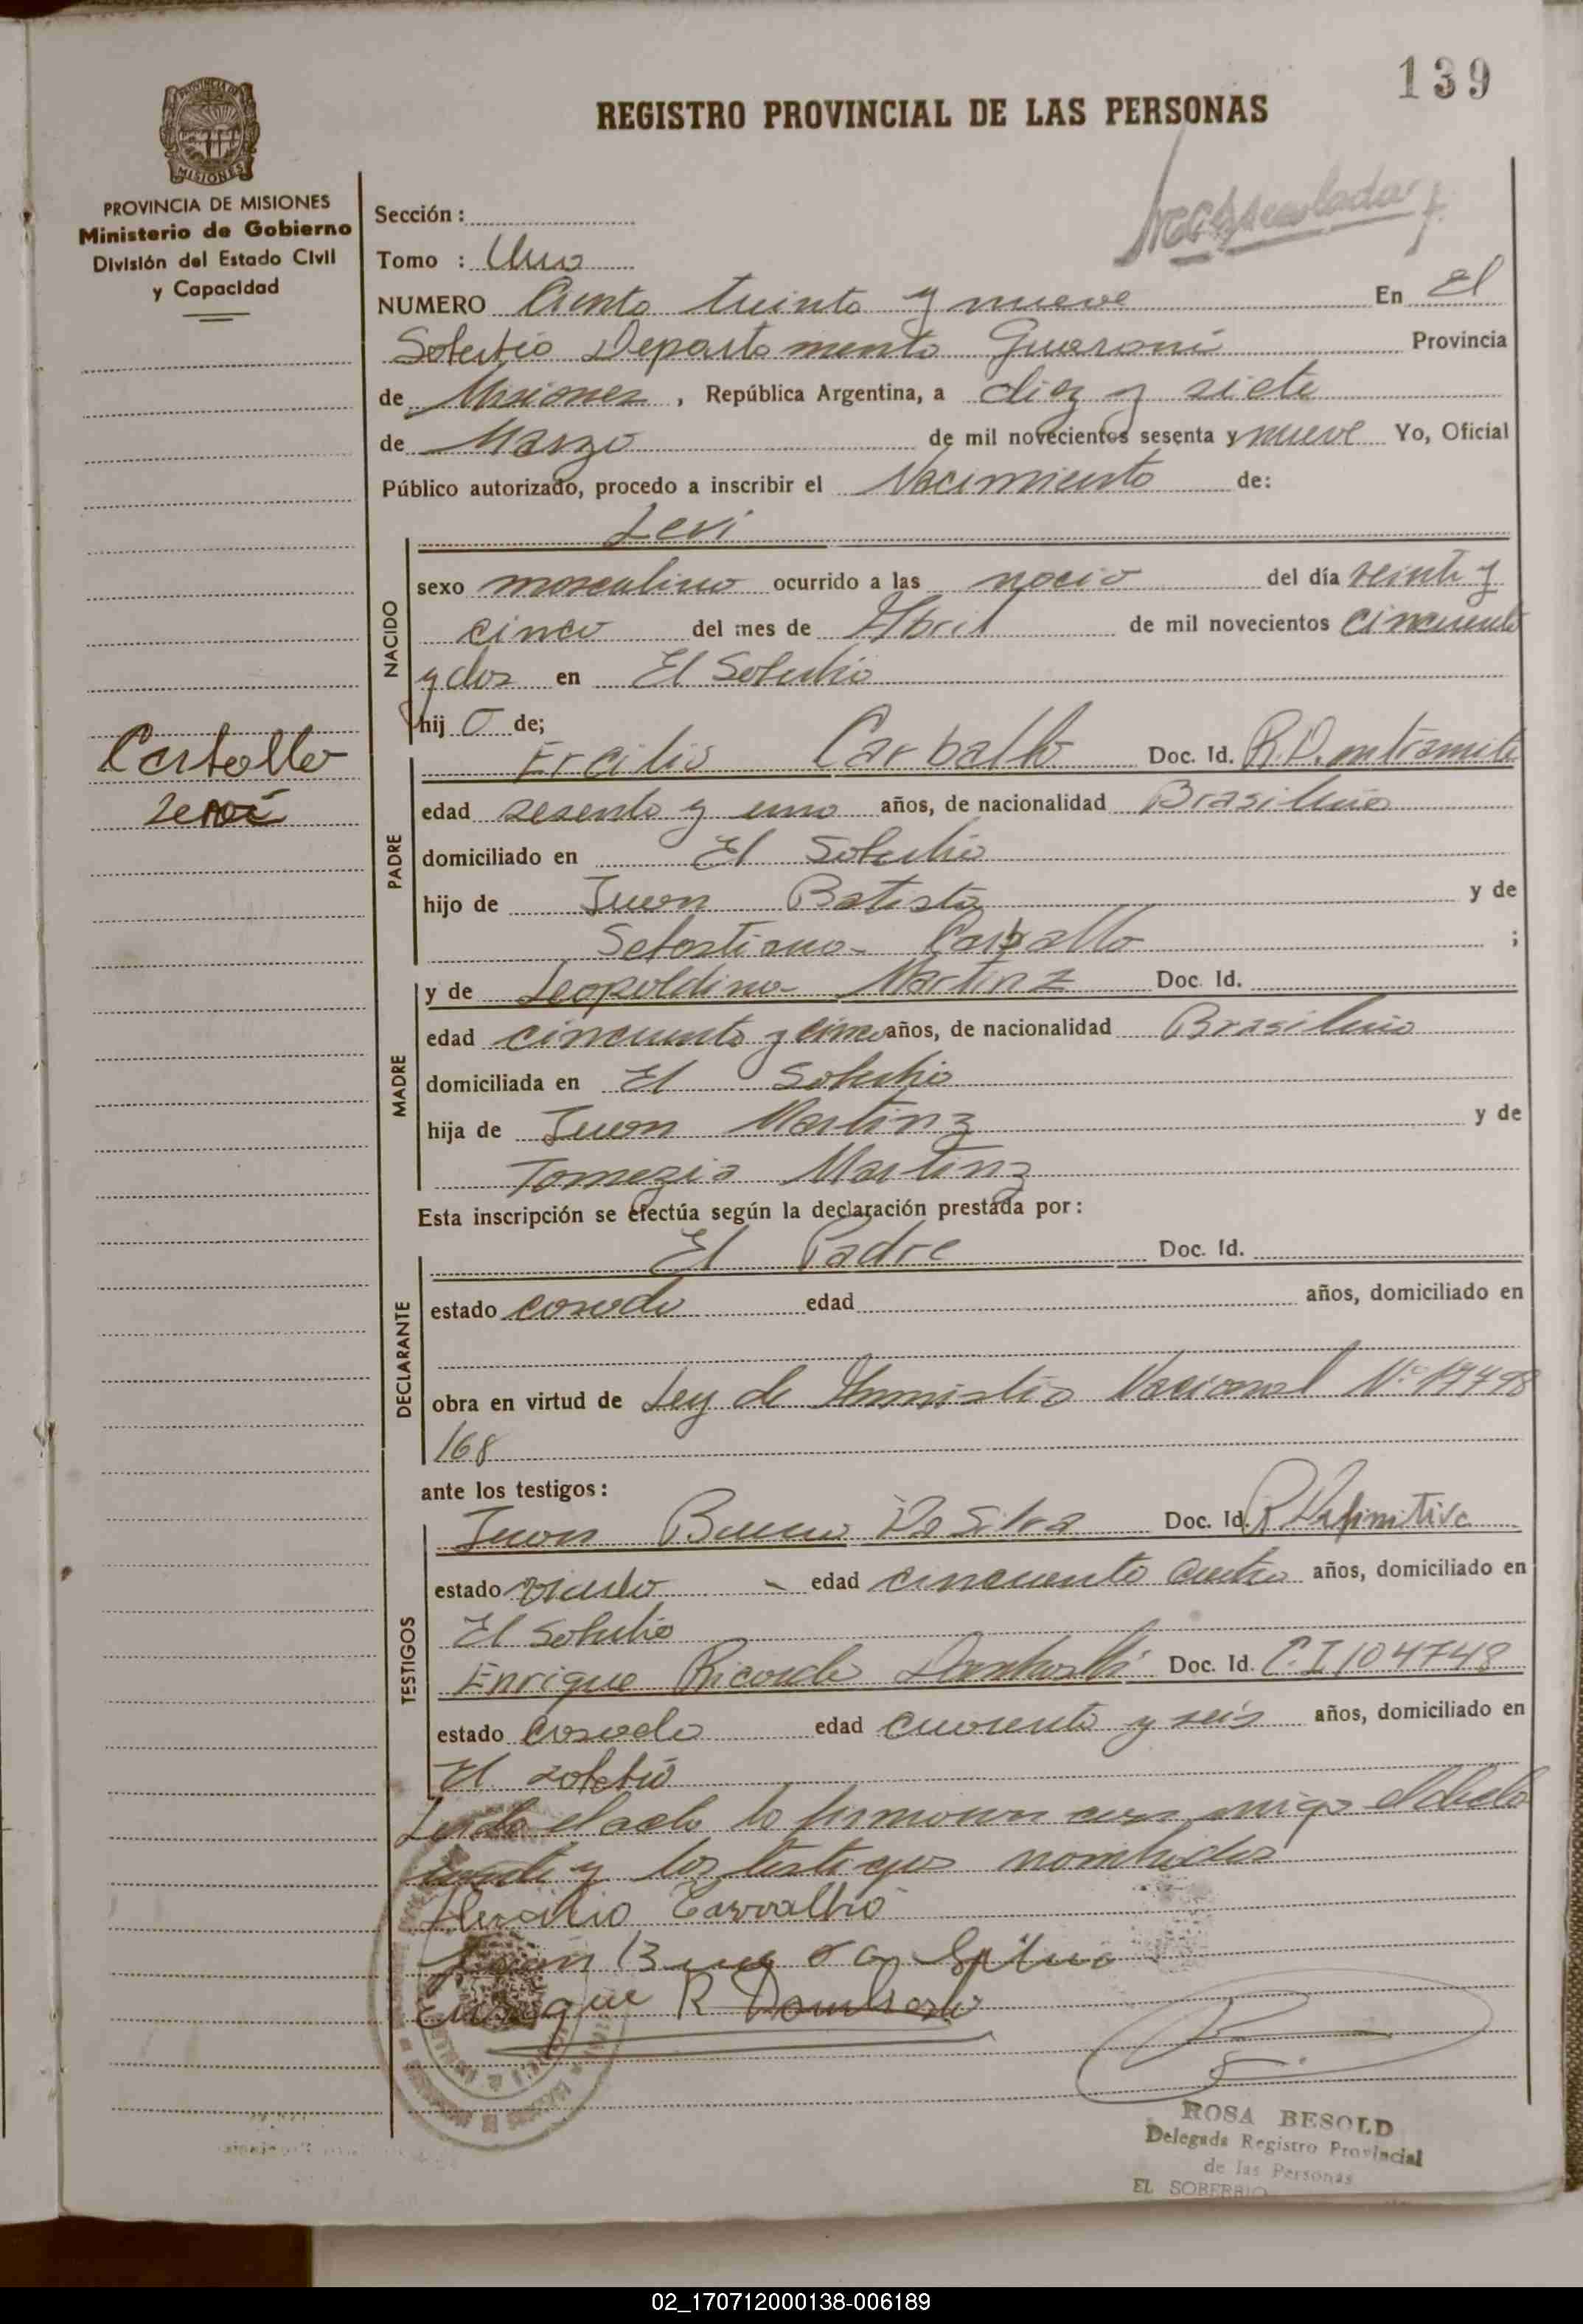 139
REGISTRO PROVINCIAL DE LAS PERSONAS
MISIONES
PROVINCIA DE MISIONES
Ministerio de Gobierno
División del Estado Civil
y Capacidad
Sección :
Tomo : Uno
NUMERO Ciento treinta y nueve En El
Soberbio Departamento Guarani Provincia
de Misiones, República Argentina, a diez y siete
de Marzo de mil novecientos sesenta y nueve Yo, Oficial
Público autorizado, procedo a inscribir el Nacimiento de:
Levi
NACIDO
sexo masculino ocurrido a las del día veinte y
cinco del mes de Abril de mil novecientos cincuenta
y dos en El Soberbio
hij o de;
Carballo
Levi
PADRE
Ercilio Carballo Doc. Id. R.D. en tramite
edad sesenta y uno años, de nacionalidad Brasileño
domiciliado en El Soberbio
hijo de Juan Batista y de
Sebastiana Carballo ;
MADRE
y de Leopoldina Martinz Doc. Id.
edad cincuenta y cinco años, de nacionalidad Brasileña
domiciliada en El Soberbio
hija de Juan Martinz y de
Tomezia Martinz
Esta inscripción se efectúa según la declaración prestada por :
DECLARANTE
El Padre Doc. Id.
estado casado edad años, domiciliado en
obra en virtud de Ley de Amnistia Nacional Nº 17498
168
ante los testigos :
TESTIGOS
Juan Bueno Da Silva Doc. Id. R. Definitiva
estado viudo edad cincuenta cuatro años, domiciliado en
El Soberbio
Enrique Ricardo Doc. Id. C.I 104748
estado casado edad cuarenta y seis años, domiciliado en
El Soberbio
Leida el acta la firman con migo el decla
rante y los testigos nombrados
Carvalho
Juan Bueno da Silva
Enrique R
ROSA BESOLD
Delegada Registro Provincial
de las Personas
EL SOBERBIO
02_170712000138-006189